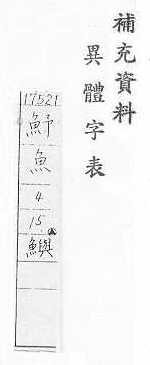 補充資料
異體字表
17521
魣
魚
4
15
鱮